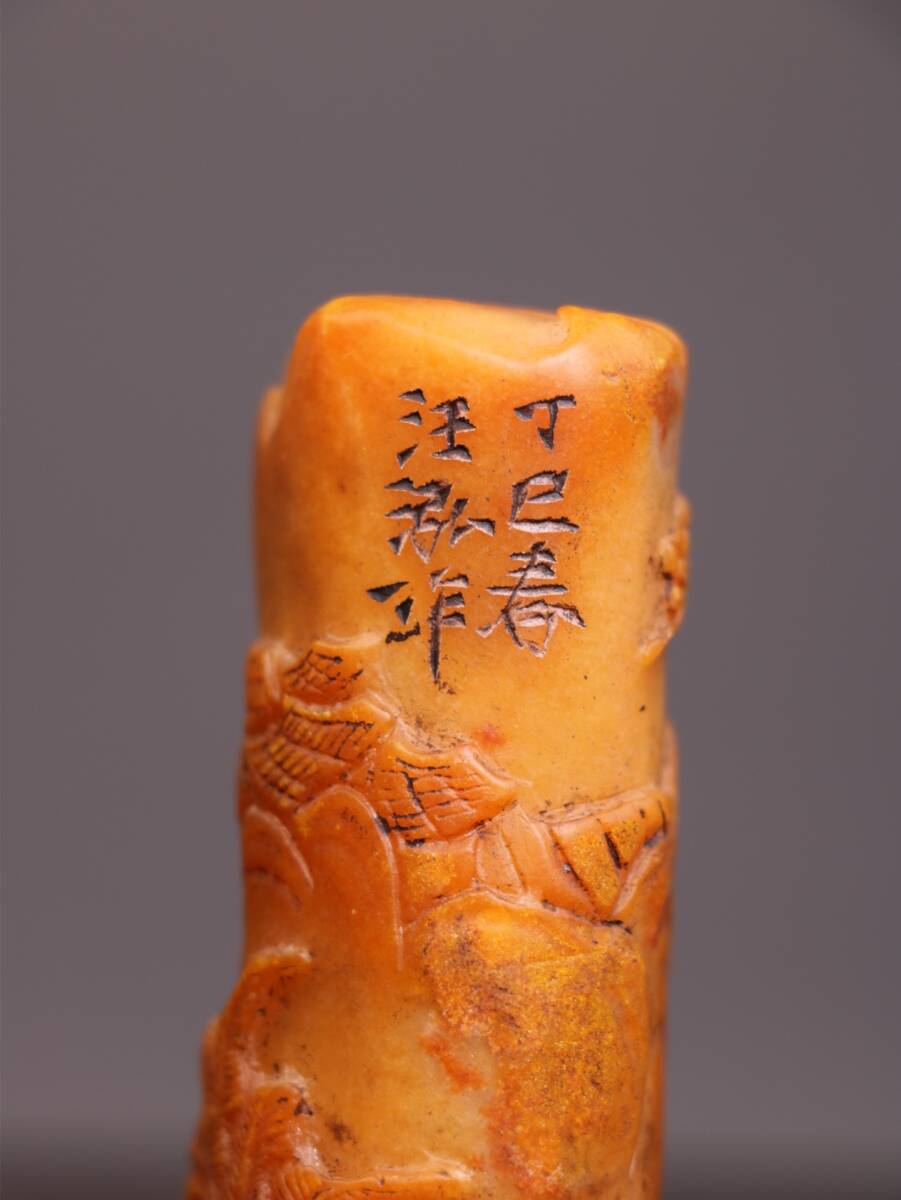 丁巳春
汪泓作